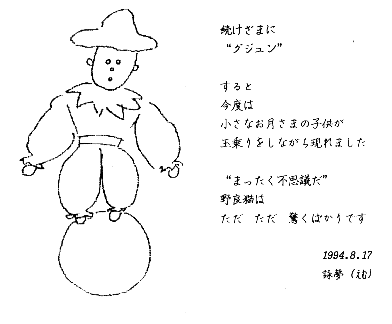 続けざまに
“グジュン”
すると
今度は
小さなお月さまの子供が
玉乗りをしながら現れました
“まったく不思議だ”
野良猫は
ただ ただ 驚くばかりです
1994.8.17
詠夢（えむ）